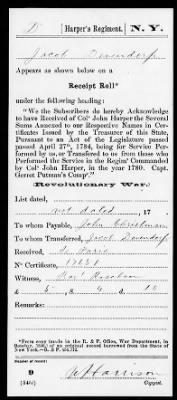 D | Harper's Regiment. | N. Y.
Jacob Devendorf
Appears as shown below on a
Receipt Roll*
under the following heading:
"We the Subscribers do hereby Acknowledge
to have Received of Colº John Harper the Several
Sums Annexed to our Respective Names in Cer-
tificates Issued by the Treasurer of this State,
Pursuant to an Act of the Legislature passed
passed April 27th, 1784, being for Service Per-
formed by us or Transfered to us from those who
Performed the Service in the Regimt Commanded
by Colº John Harper, in the year 1780. Capt.
Gerret Putmen's Compy."
(Revolutionary War.)
List dated,
not dated, 17
To whom Payable, John Christman
To whom Transferred, Jacob Devendorf
Received,
Nº Certificate, 17638
Witness,
£ 5, s. 4 d. 10
Remarks:
*From copy furnished by the R. & P. Office, War Department, in
Number of record
9
(545c)
W Harrison
Copyist.